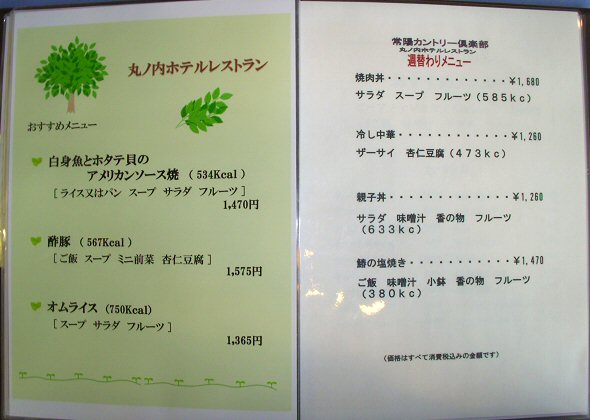 丸ノ内ホテルレストラン
おすすめメニュー
白身魚とホタテ貝の
アメリカンソース焼 (534Kcal)
[ライス又はパン スープ サラダ フルーツ]
1,470円
酢豚 (567Kcal)
[ご飯 スープ ミニ前菜 杏仁豆腐]
1,575円
オムライス (750Kcal)
[スープ サラダ フルーツ]
1,365円
常陽カントリー倶楽部
丸ノ内ホテルレストラン
週替わりメニュー
焼肉丼・・・・・・・・・・・・¥1,680
サラダ スープ フルーツ(585kc)
冷し中華・・・・・・・・・・・¥1,260
ザーサイ 杏仁豆腐(473kc)
親子丼・・・・・・・・・・・・¥1,260
サラダ 味噌汁 香の物 フルーツ
(633kc)
鰺の塩焼き・・・・・・・・・・¥1,470
ご飯 味噌汁 小鉢 香の物 フルーツ
(380kc)
(価格はすべて消費税込みの金額です)